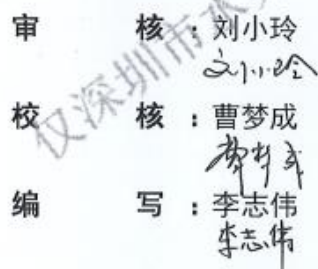 审 核：刘小玲
刘小玲
校 核：曹梦成
曹梦成
编 写：李志伟
李志伟
仅深圳市